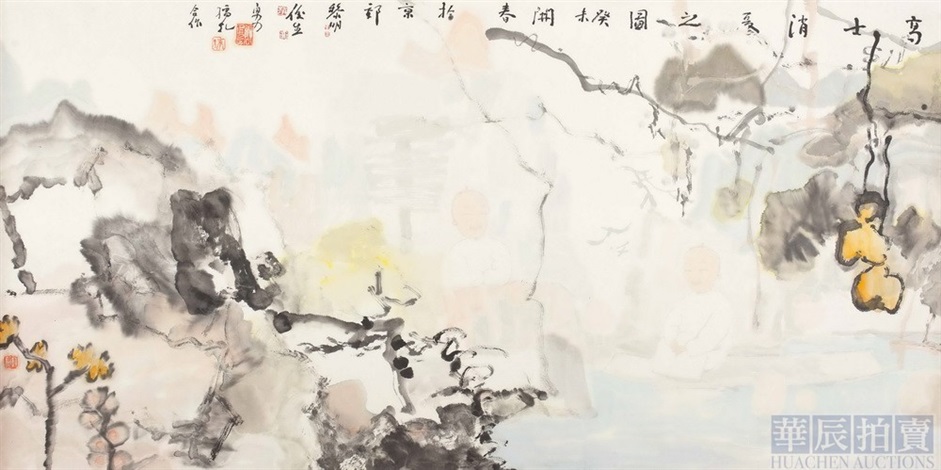 高士消夏之圖癸未開春於京郊黎明
合作
華辰拍賣
HUACHEN AUCTIONS